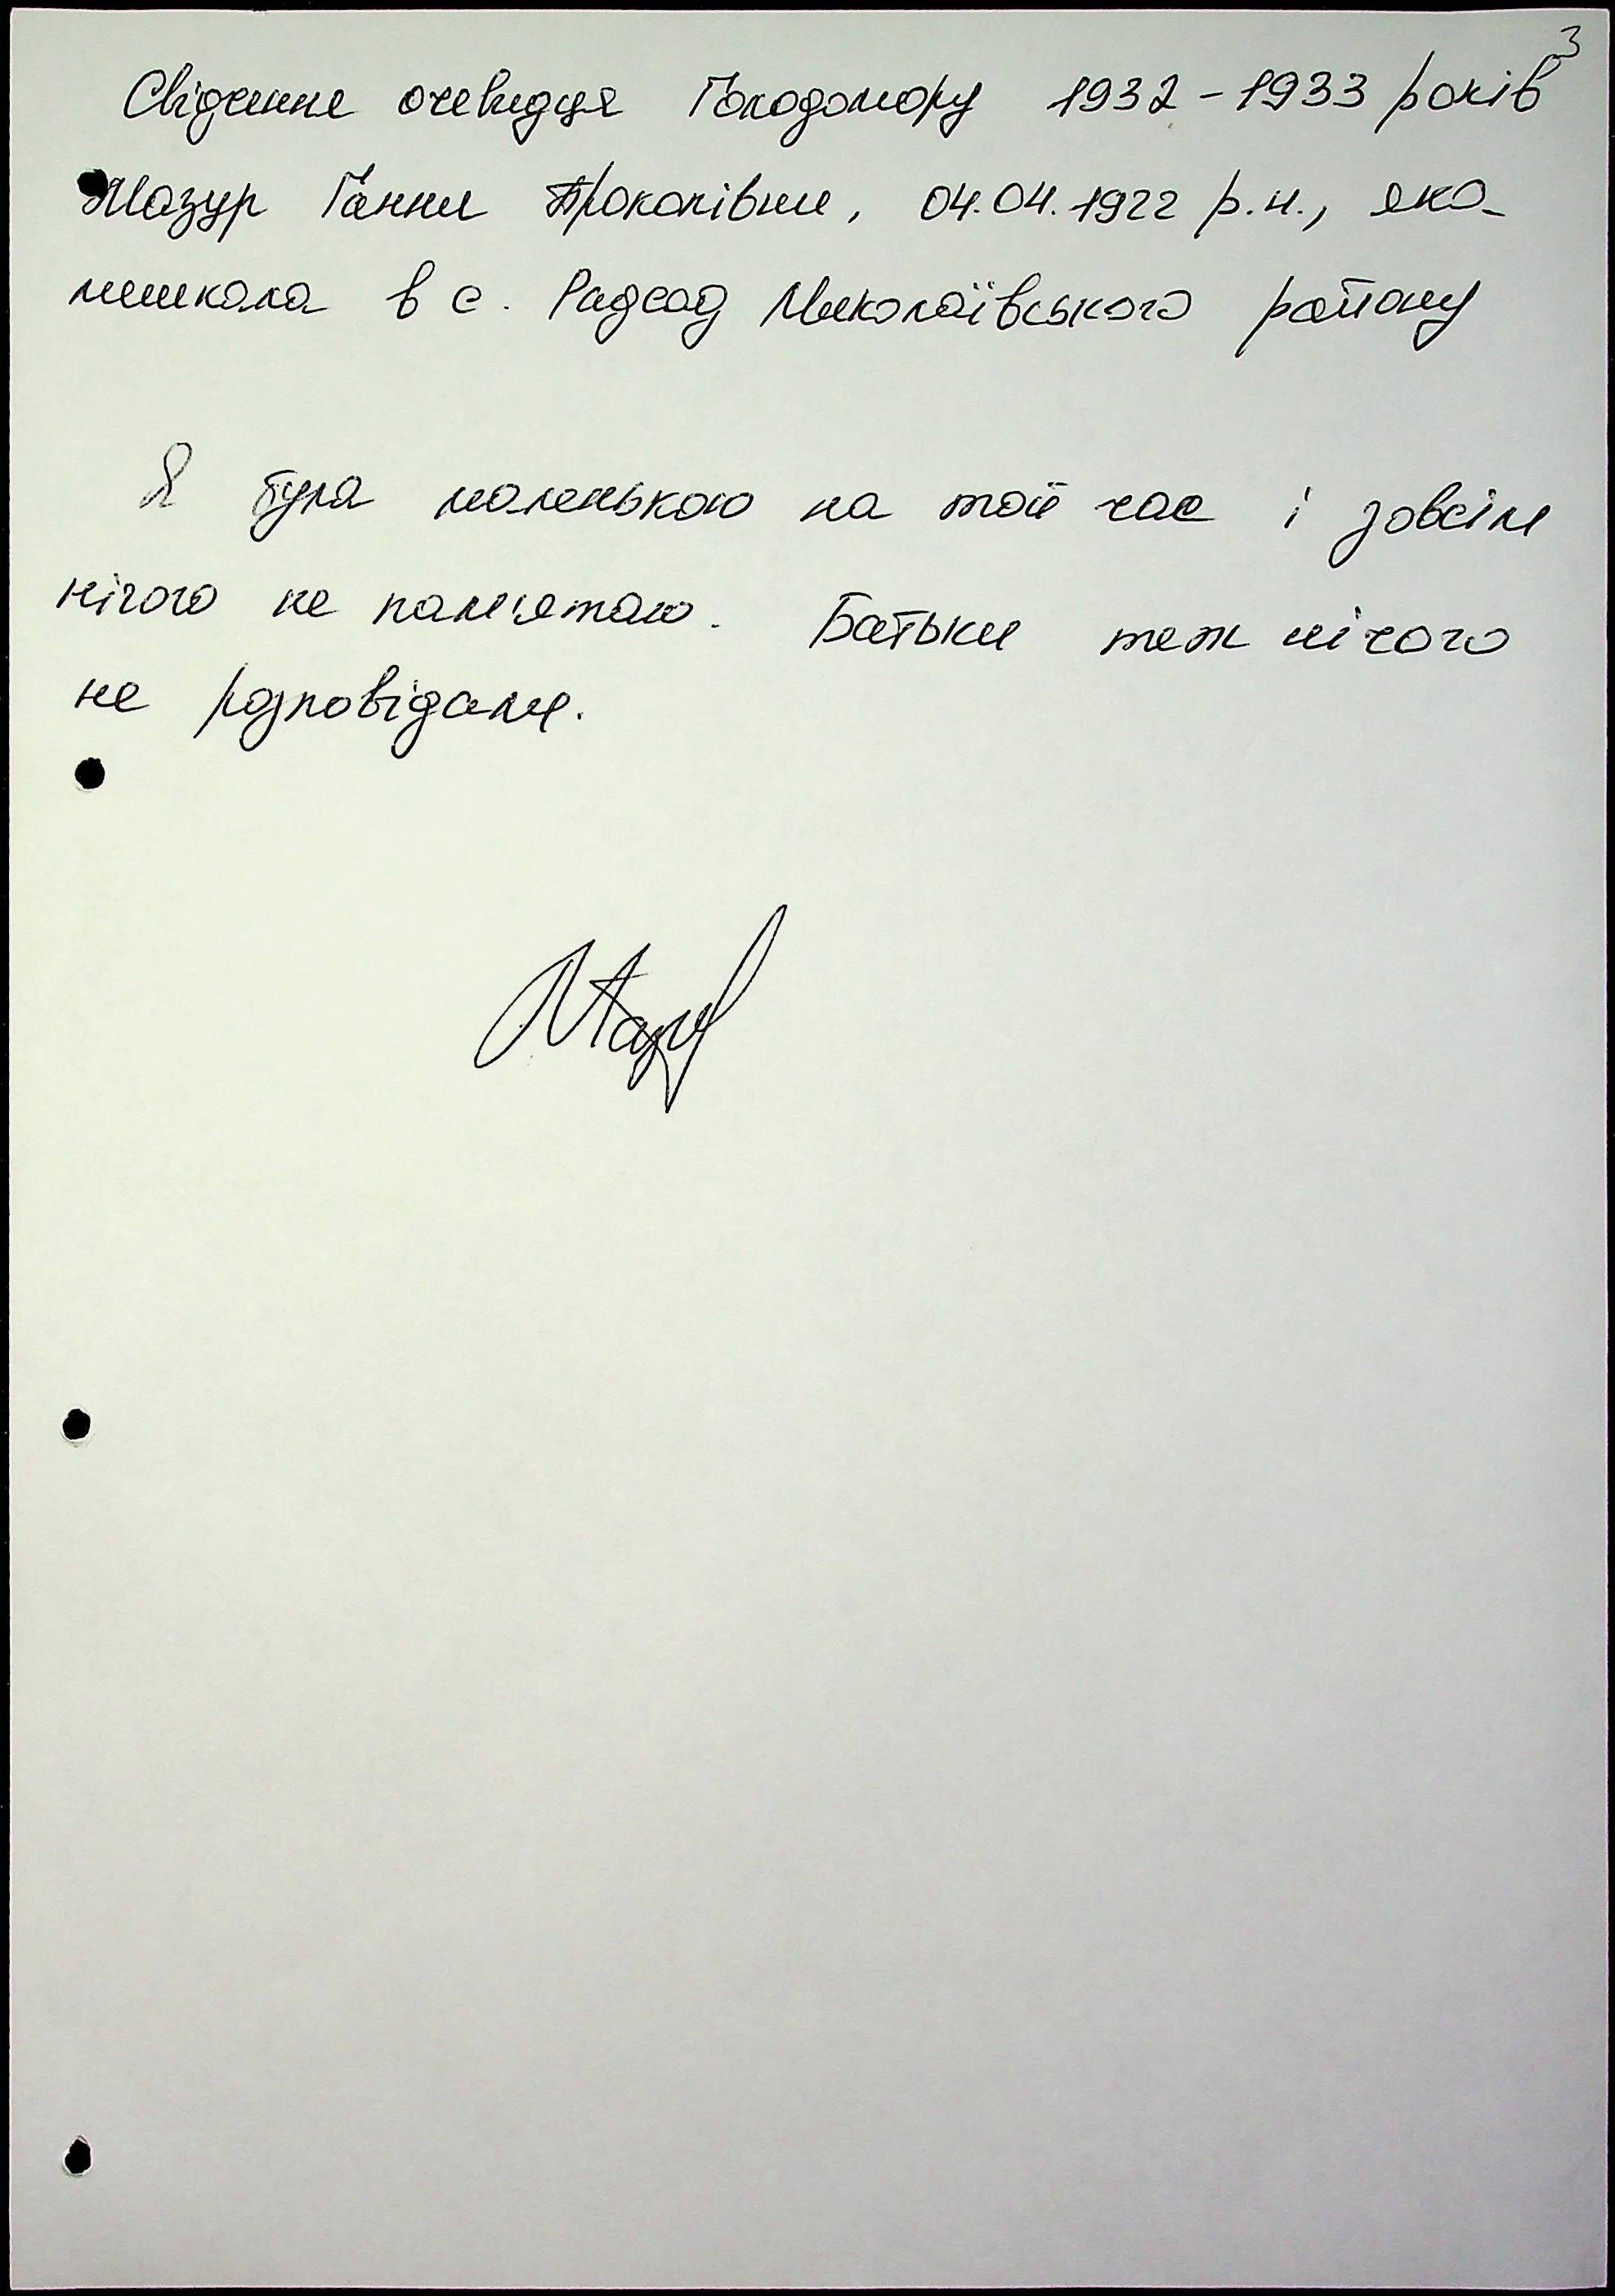 3
Свідчення очевидця Голодомору 1932-1933 років
Мазур Ганни Прокопівни, 04.04.1922 р.н., яка
мешкала в с. Радсад Миколаївського району
Я була маленькою на той час і зовсім
нічого не пам'ятаю. Батьки теж нічого
не розповідали.
Мазур